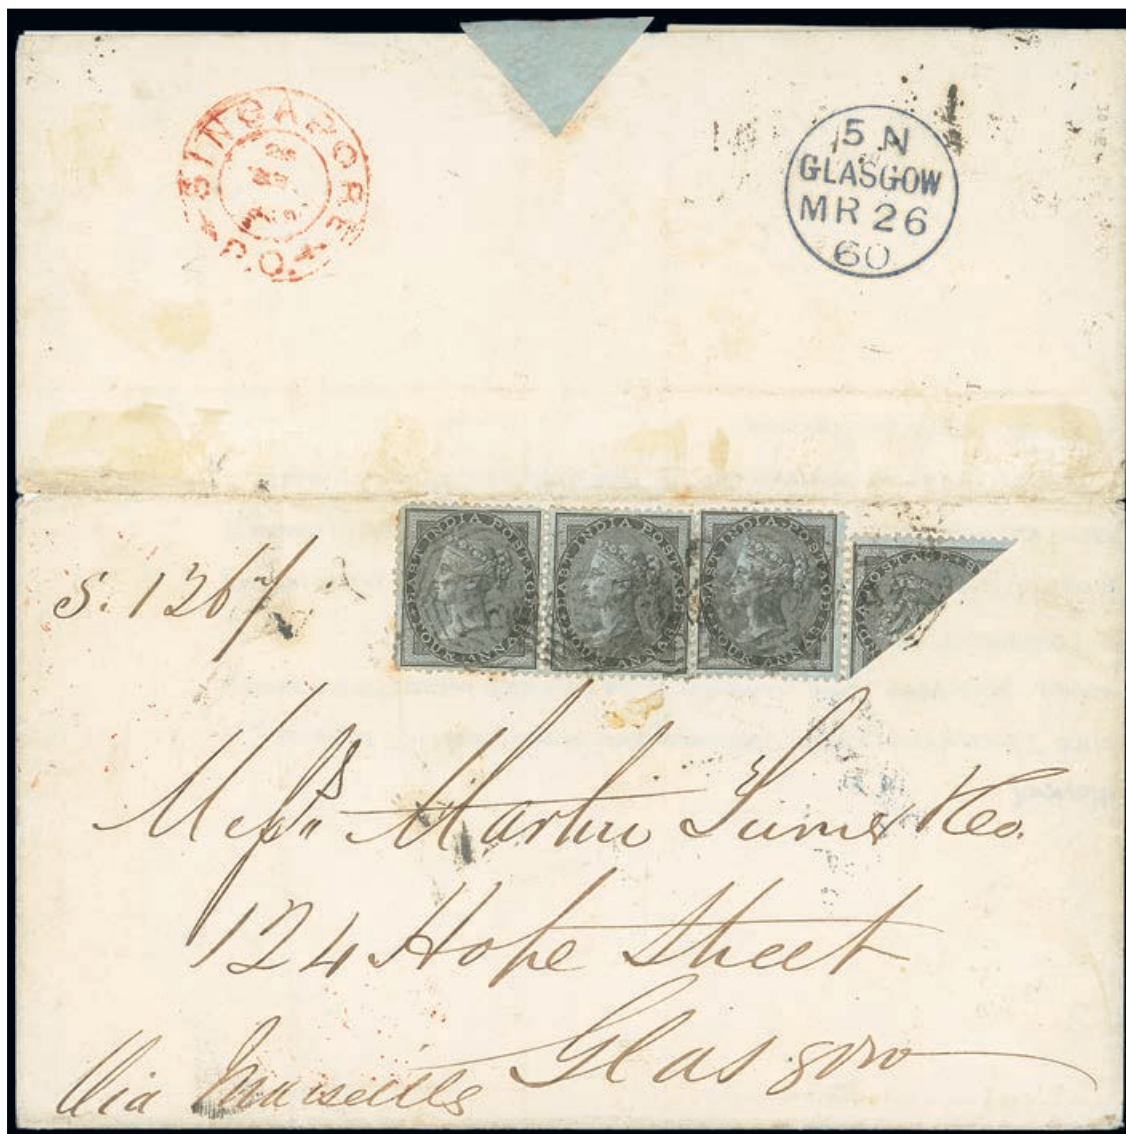 SINGAPORE P.O.
5 N
GLASGOW
MR 26
60
EAST INDIA POSTAGE
FOUR ANNAS
EAST INDIA POSTAGE
FOUR ANNAS
EAST INDIA POSTAGE
FOUR ANNAS
S. 126/
Messrs Martin Turner & Co.
124 Hope Street
Glasgow
Via Marseilles